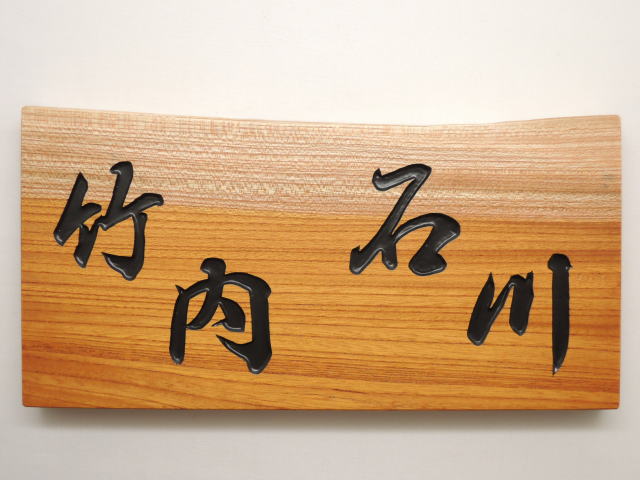 石川
竹内